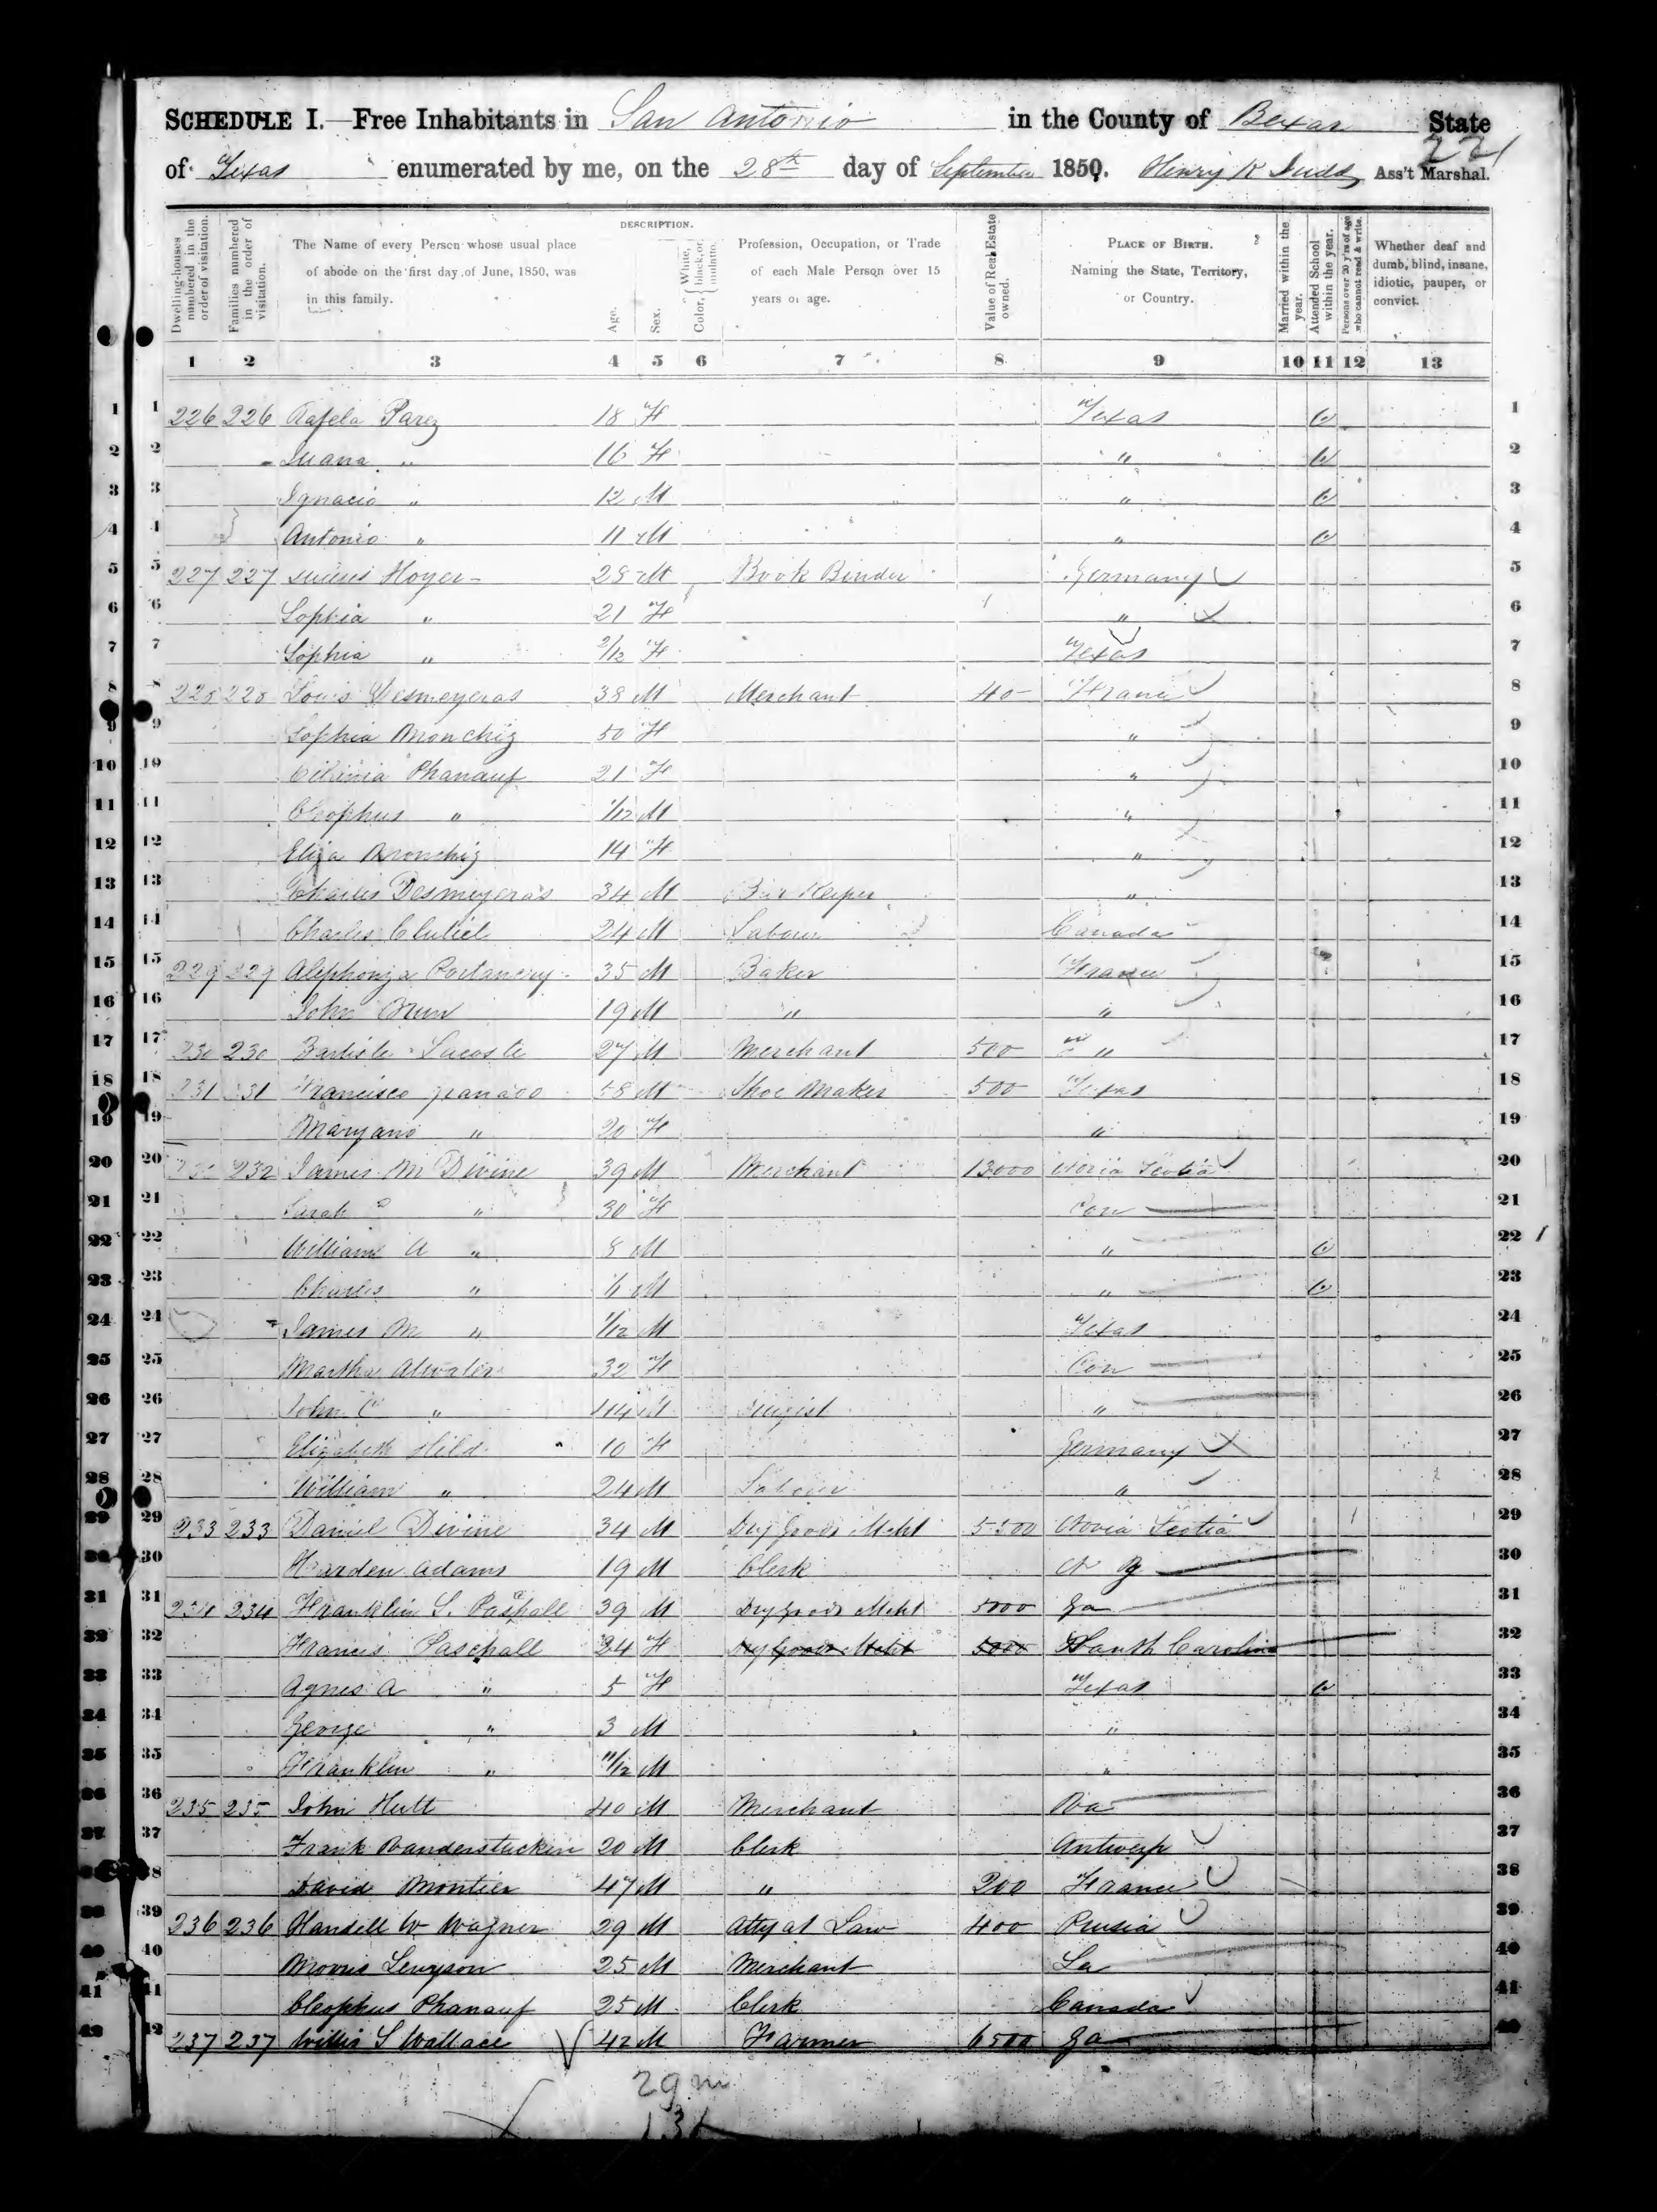 SCHEDULE I.—Free Inhabitants in San Antonio in the County of Bexar State
221
of Texas enumerated by me, on the 28th day of September 1850. Henry K Judd Ass't Marshal.
Dwelling-houses numbered in the order of visitation. Families numbered in the order of visitation. The Name of every Person whose usual place of abode on the first day of June, 1850, was in this family. DESCRIPTION. Age. Sex. Color, { White, black, or mulatto. Profession, Occupation, or Trade of each Male Person over 15 years of age. Value of Real Estate owned. PLACE OF BIRTH. Naming the State, Territory, or Country. Married within the year. Attended School within the year. Persons over 20 y'rs of age who cannot read & write. Whether deaf and dumb, blind, insane, idiotic, pauper, or convict.
1 2 3 4 5 6 7 8 9 10 11 12 13
1 1 226 226 Rafela Parez 18 F Texas 1
2 2 Juana " 16 F " 2
3 3 Ignacio " 12 M " 3
4 4 Antonio " 11 M " 4
5 5 227 227 Hoyer 28 M Book Binder Germany 5
6 6 Sophia " 21 F " 6
7 7 Sophia " 2/12 F Texas 7
8 8 228 228 Louis Desmeyeras 38 M Merchant 40 France 8
9 9 Sophia Monchiz 50 F " 9
10 10 Phanauf 21 F " 10
11 11 Cleophus " 1/12 M " 11
12 12 Eliza Monchiz 14 F " 12
13 13 Charles Desmeyeras 34 M Bar Keeper " 13
14 14 Charles 24 M Labour Canada 14
15 15 229 229 35 M Baker France 15
16 16 John 19 M " " 16
17 17 230 230 Lacoste 27 M Merchant 500 " 17
18 18 231 231 Francisco 58 M Shoe Maker 500 Texas 18
19 19 Maryano " 20 F " 19
20 20 232 232 James M Divine 39 M Merchant 13000 Novia Scotia 20
21 21 Sarah " 30 F Con 21
22 22 William A " 8 M " 22
23 23 Charles " 6 M " 23
24 24 James M " 1/12 M Texas 24
25 25 Martha Atwater 32 F Con 25
26 26 John C " 14 M " 26
27 27 Elizabeth Hild 10 F Germany 27
28 28 William " 24 M Labour " 28
29 29 233 233 Daniel Divine 34 M Dry Goods Mcht 5500 Novia Scotia 29
30 30 Harden Adams 19 M Clerk 30
31 31 234 234 Franklin L. Paschall 39 M Dry Goods Mcht 5000 Ga 31
32 32 Francis Paschall 24 F Dry Goods Mcht 5000 South Carolina 32
33 33 Agnes A " 5 F Texas 33
34 34 George " 3 M " 34
35 35 Franklin " 11/12 M " 35
36 36 235 235 John Hutt 40 M Merchant Va 36
37 37 Frank Vanderstucken 20 M Clerk Antwerp 37
38 38 David Montier 47 M " 200 France 38
39 39 236 236 Handell W Wagner 29 M Atty at Law 400 Prusia 39
40 40 Levyson 25 M Merchant La 40
41 41 Cleophus Phanauf 25 M Clerk Canada 41
42 42 237 237 Willis S Wallace 42 M Farmer 6500 Ga 42
29 m